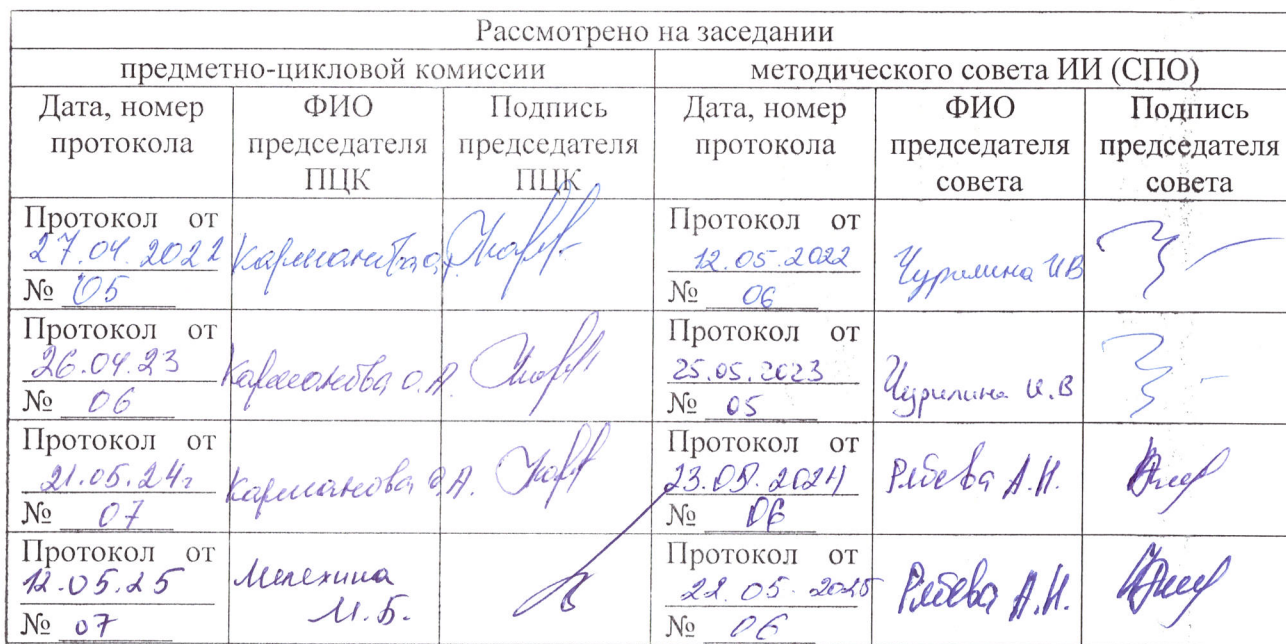 Рассмотрено на заседании
предметно-цикловой комиссии
методического совета ИИ (СПО)
Дата, номер
протокола
ФИО
председателя
ПЦК
Подпись
председателя
ПЦК
Дата, номер
протокола
ФИО
председателя
совета
Подпись
председателя
совета
Протокол от
27.04.2022
№ 05
Карманова О.
Протокол от
12.05.2022
№ 06
Чурилина ИВ
Протокол от
26.04.23
№ 06
Карманова О.А.
Протокол от
25.05.2023
№ 05
Чурилина И.В
Протокол от
21.05.24г
№ 07
Карманова О.А.
Протокол от
23.05.2024
№ 06
А.Н.
Протокол от
12.05.25
№ 07
Мелехина
М.Б.
Протокол от
22.05.2025
№ 06
А.Н.